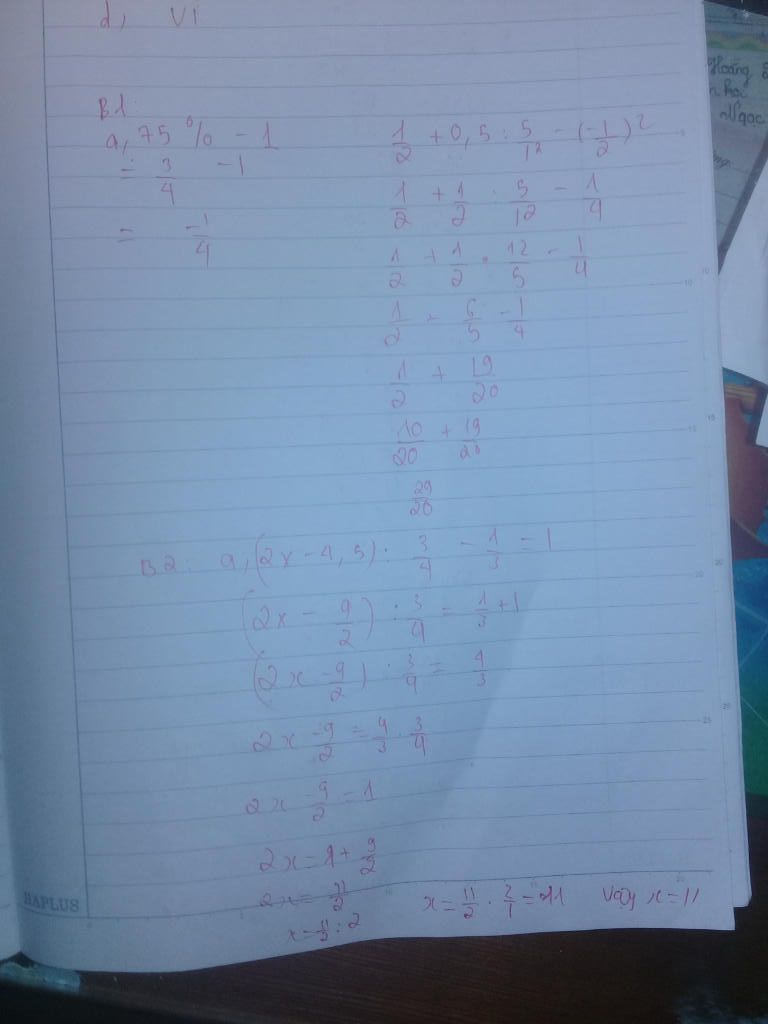 d, Vì
Hoàng
Ngọc
B1:
a, 75% - 1
= 3/4 - 1
= -1/4
1/2 + 0,5 : 5/12 - (-1/2)²
1/2 + 1/2 : 5/12 - 1/4
1/2 + 1/2 . 12/5 - 1/4
1/2 + 6/5 - 1/4
1/2 + 19/20
10/20 + 19/20
29/20
B2: a, (2x - 4,5) : 3/4 - 1/3 = 1
(2x - 9/2) : 3/4 = 1/3 + 1
(2x - 9/2) : 3/4 = 4/3
2x - 9/2 = 4/3 . 3/4
2x - 9/2 = 1
2x = 1 + 9/2
2x = 11/2
x = 11/2 : 2
x = 11/2 . 2/1 = 11 Vậy x = 11
HAPLUS